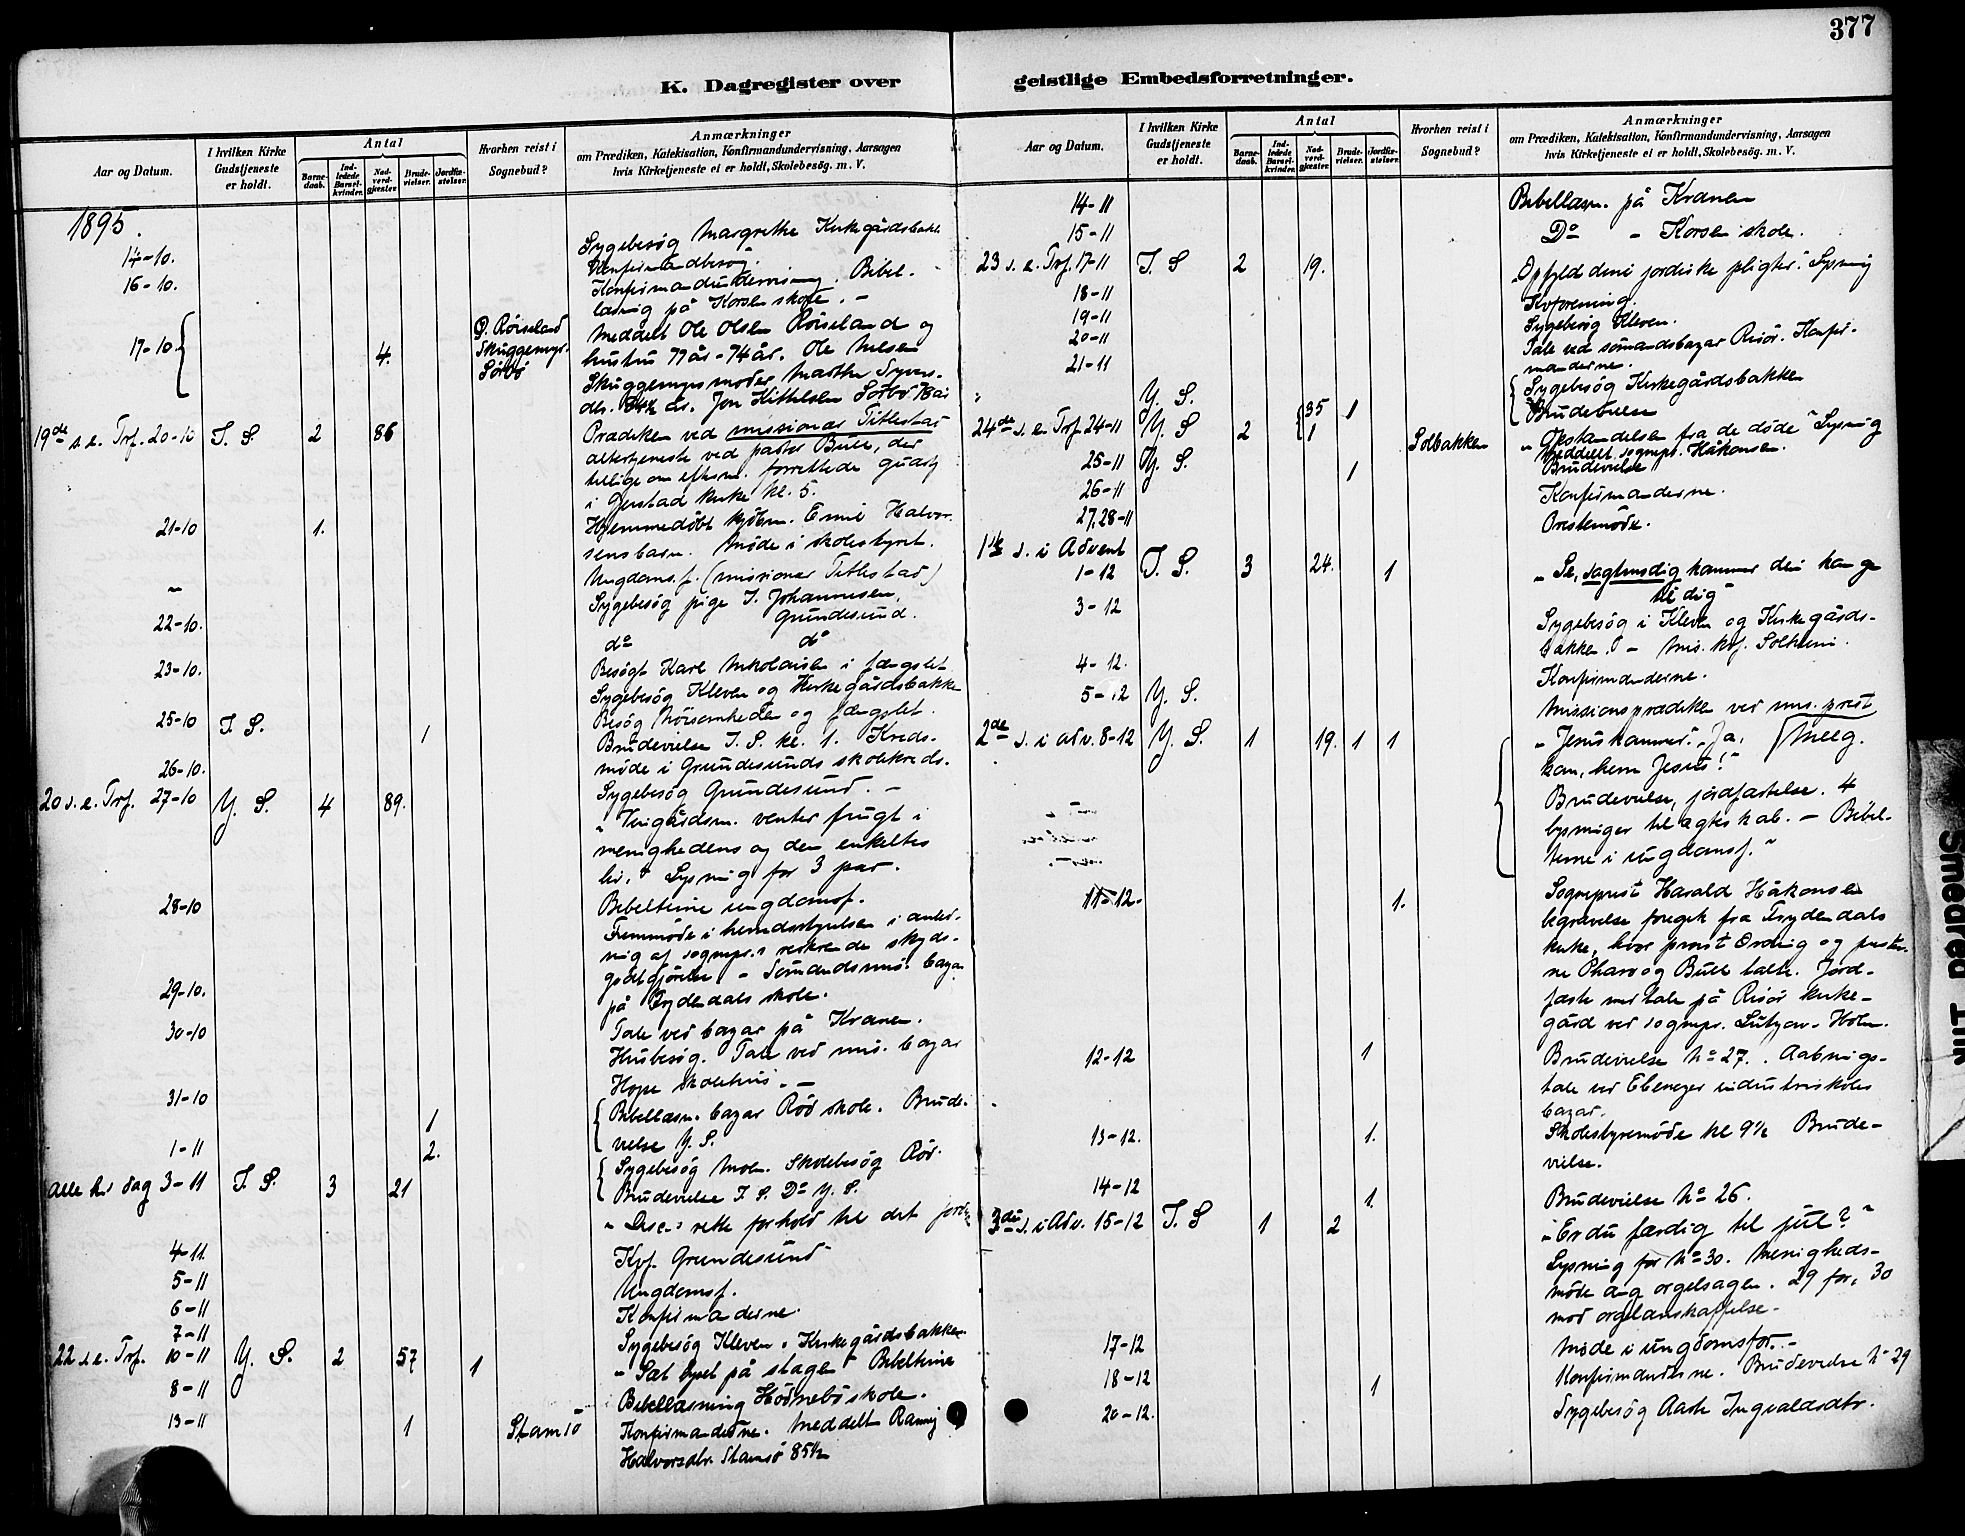 377
K. Dagregister over geistlige Embedsforretninger.
Aar og Datum.
I hvilken Kirke Gudstjeneste er holdt.
Antal
Barnedaab.
Indledede Barselkvinder.
Nadverdgjester.
Brudevielser.
Jordfæstelser.
Hvorhen reist i Sognebud?
Anmærkninger
om Prædiken, Katekisation, Konfirmandundervisning, Aarsagen
hvis Kirketjeneste ei er holdt, Skolebesøg. m. V.
1895.
14-10. Sygebesøg Margrethe Kirkegårdsbakk
Konfirmandbesøg.
16-10. Konfirmandundervisning. Bibel-
læsnig på Korsen skole. -
17-10 4. O. Röiseland Skuggemyr. Sörbö Meddelt Ole Olsen Röiseland og
hustru 77 år - 74 år. Ole Nielsen
Skuggemyrs moder Marthe Syvers-
dtr. 84½ år. Jon Kittelsen Sörbö 78 år
19de s. e. Trf. 20-10 I. S. 2 86 Prædiken ved missionær Titlestad
altertjeneste ved pastor Bull, der
tillige om efterm. forrettede gudstj
i Gjerstad kirke kl. 5.
21-10 1. Hjemmedöbt kjöbm. Emil Halvor-
sens barn. Möde i skolestyret.
" Ungdomsf. (missionær Titlestad)
22-10. Sygebesøg pige I. Johannesen,
Grundesund.
do do
23-10. Besögt Karl Nikolaisen i fængslet
Sygebesøg Kleven og Kirkegårdsbakke
25-10 I. S. 1 Besøg Nöisomheden og fængslet.
Brudevielse I. S. kl. 1. Kreds-
26-10. möde i Grundesunds skolekreds.
Sygebesøg Grundesund. -
20 s. e. Trf. 27-10 Y. S. 4 89. "Vingårdsm. venter frugt i
menighedens og den enkeltes
liv." Lysnig for 3 par.
28-10 Bibeltime ungdomsf.
Femmöde i herredsstyrelsen i anled-
nig af sognepr.s skyds-
godtgjörelse - Sömandsmis. bazar
29-10. på Frydendals skole.
30-10 Tale ved bazar på Kranen.
Husbesøg. Tale ved mis. bazar
Hope skolehus. -
31-10 1 Bibellæsn. bazar Röd skole. Brude-
vielse Y. S.
1-11 2. Sygebesøg Moen. Skolebesøg Röd.
Brudevielse I. S. Do Y. S.
Alle h.s dag 3-11 I. S. 3 21 "Disc.s rette forhold til det jordn
4-11. Kvf. Grundesund
5-11 Ungdomsf.
6-11 Konfirmanderne.
7-11 Sygebesøg Kleven, Kirkegårdsbakken.
22 s. e. Trf. 10-11 Y. S. 2 57 1 "Sæt lyset på stagen" Bibeltime
8-11 Bibellæsning Hödnebö skole.
13-11 1 Stamsö Konfirmanderne. Meddelt Rannig
Halvorsdtr. Stamsö 85½
Aar og Datum.
I hvilken Kirke Gudstjeneste er holdt.
Antal
Barnedaab.
Indledede Barselkvinder.
Nadverdgjester.
Brudevielser.
Jordfæstelser.
Hvorhen reist i Sognebud?
Anmærkninger
om Prædiken, Katekisation, Konfirmandundervisning, Aarsagen
hvis Kirketjeneste ei er holdt, Skolebesøg. m. V.
14-11 Bibellæsn. på Kranen
15-11 Do - Korsen skole.
23 s. e. Trf. 17-11 I. S 2 19. "Opfyld dine jordiske pligter." Lysnig
18-11 Kvforening.
19-11 Sygebesøg Kleven.
20-11 Tale ved sömandsbazar Risör. Konfir-
21-11 manderne.
Sygebesøg Kirkegårdsbakken
" Y. S. 1 Brudevielse
24de s. e. Trf 24-11 Y. S 2 35 1 Solbakken "Opstandelsen fra de döde" Lysnig
Meddelt sognepr. Håkonsen.
25-11 Y. S. 1 Brudevielse
26-11 Konfirmanderne.
27, 28-11 Præstemöde.
1ste s. i Advent
1-12 I. S. 3 24. 1 "Se, sagtmodig kommer din konge
til dig"
3-12 Sygebesøg i Kleven og Kirkegårds-
bakken. - Mis. kvf. Solheim.
4-12. Konfirmanderne.
5-12 Y. S. Missionsprædiken ved mis. prest
Meeg.
2de s. i adv. 8-12 Y. S. 1 19. 1 1 "Jesus kommer." "Ja,
kom, herre Jesus!"
Brudevielse, jordfæstelse. 4
lysninger til ægteskab. - Bibel-
time i ungdomsf. "
11-12. 1. Sogneprest Harald Håkonsen
begravelse foregik fra Frydendals
kirke, hvor provst Ording og preste-
ne Pharo og Bull talte. Jord-
fæste med tale på Risör kirke-
gård ved sognepr. Lützow-Holm.
12-12 1 Brudevielse No 27. Aabnings-
tale ved Ebenezer industriskoles
bazar.
13-12. 1. Skolestyremöde kl 9½ Brude-
vielse.
14-12 1. Brudevielse No 26.
3die s. i Adv. 15-12 I. S 1 2 "Er du færdig til jul?"
Lysning for No 30. Menigheds-
möde ang orgelsagen. 29 for, 30
mod orgelanskaffelse.
17-12 Möde i ungdomsfor. -
18-12 1 Konfirmanderne. Brudevielse No 29
20-12. Sygebesøg Aaste Ingvaldsdtr.
Smedred